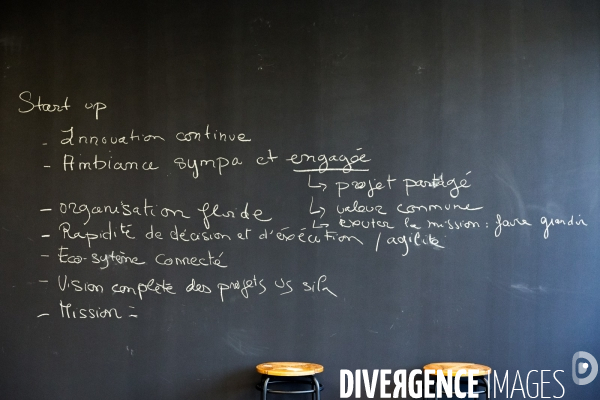 Start up
- Innovation continue
- Ambiance sympa et engagée
↳ projet partagé
↳ valeur commune
- organisation fluide
↳ la mission : faire grandir
- Rapidité de décision et d'éxécution / agilité
- Eco-système connecté
- Vision complète des projets vs silo
- Mission =
DIVERGENCE IMAGES
D